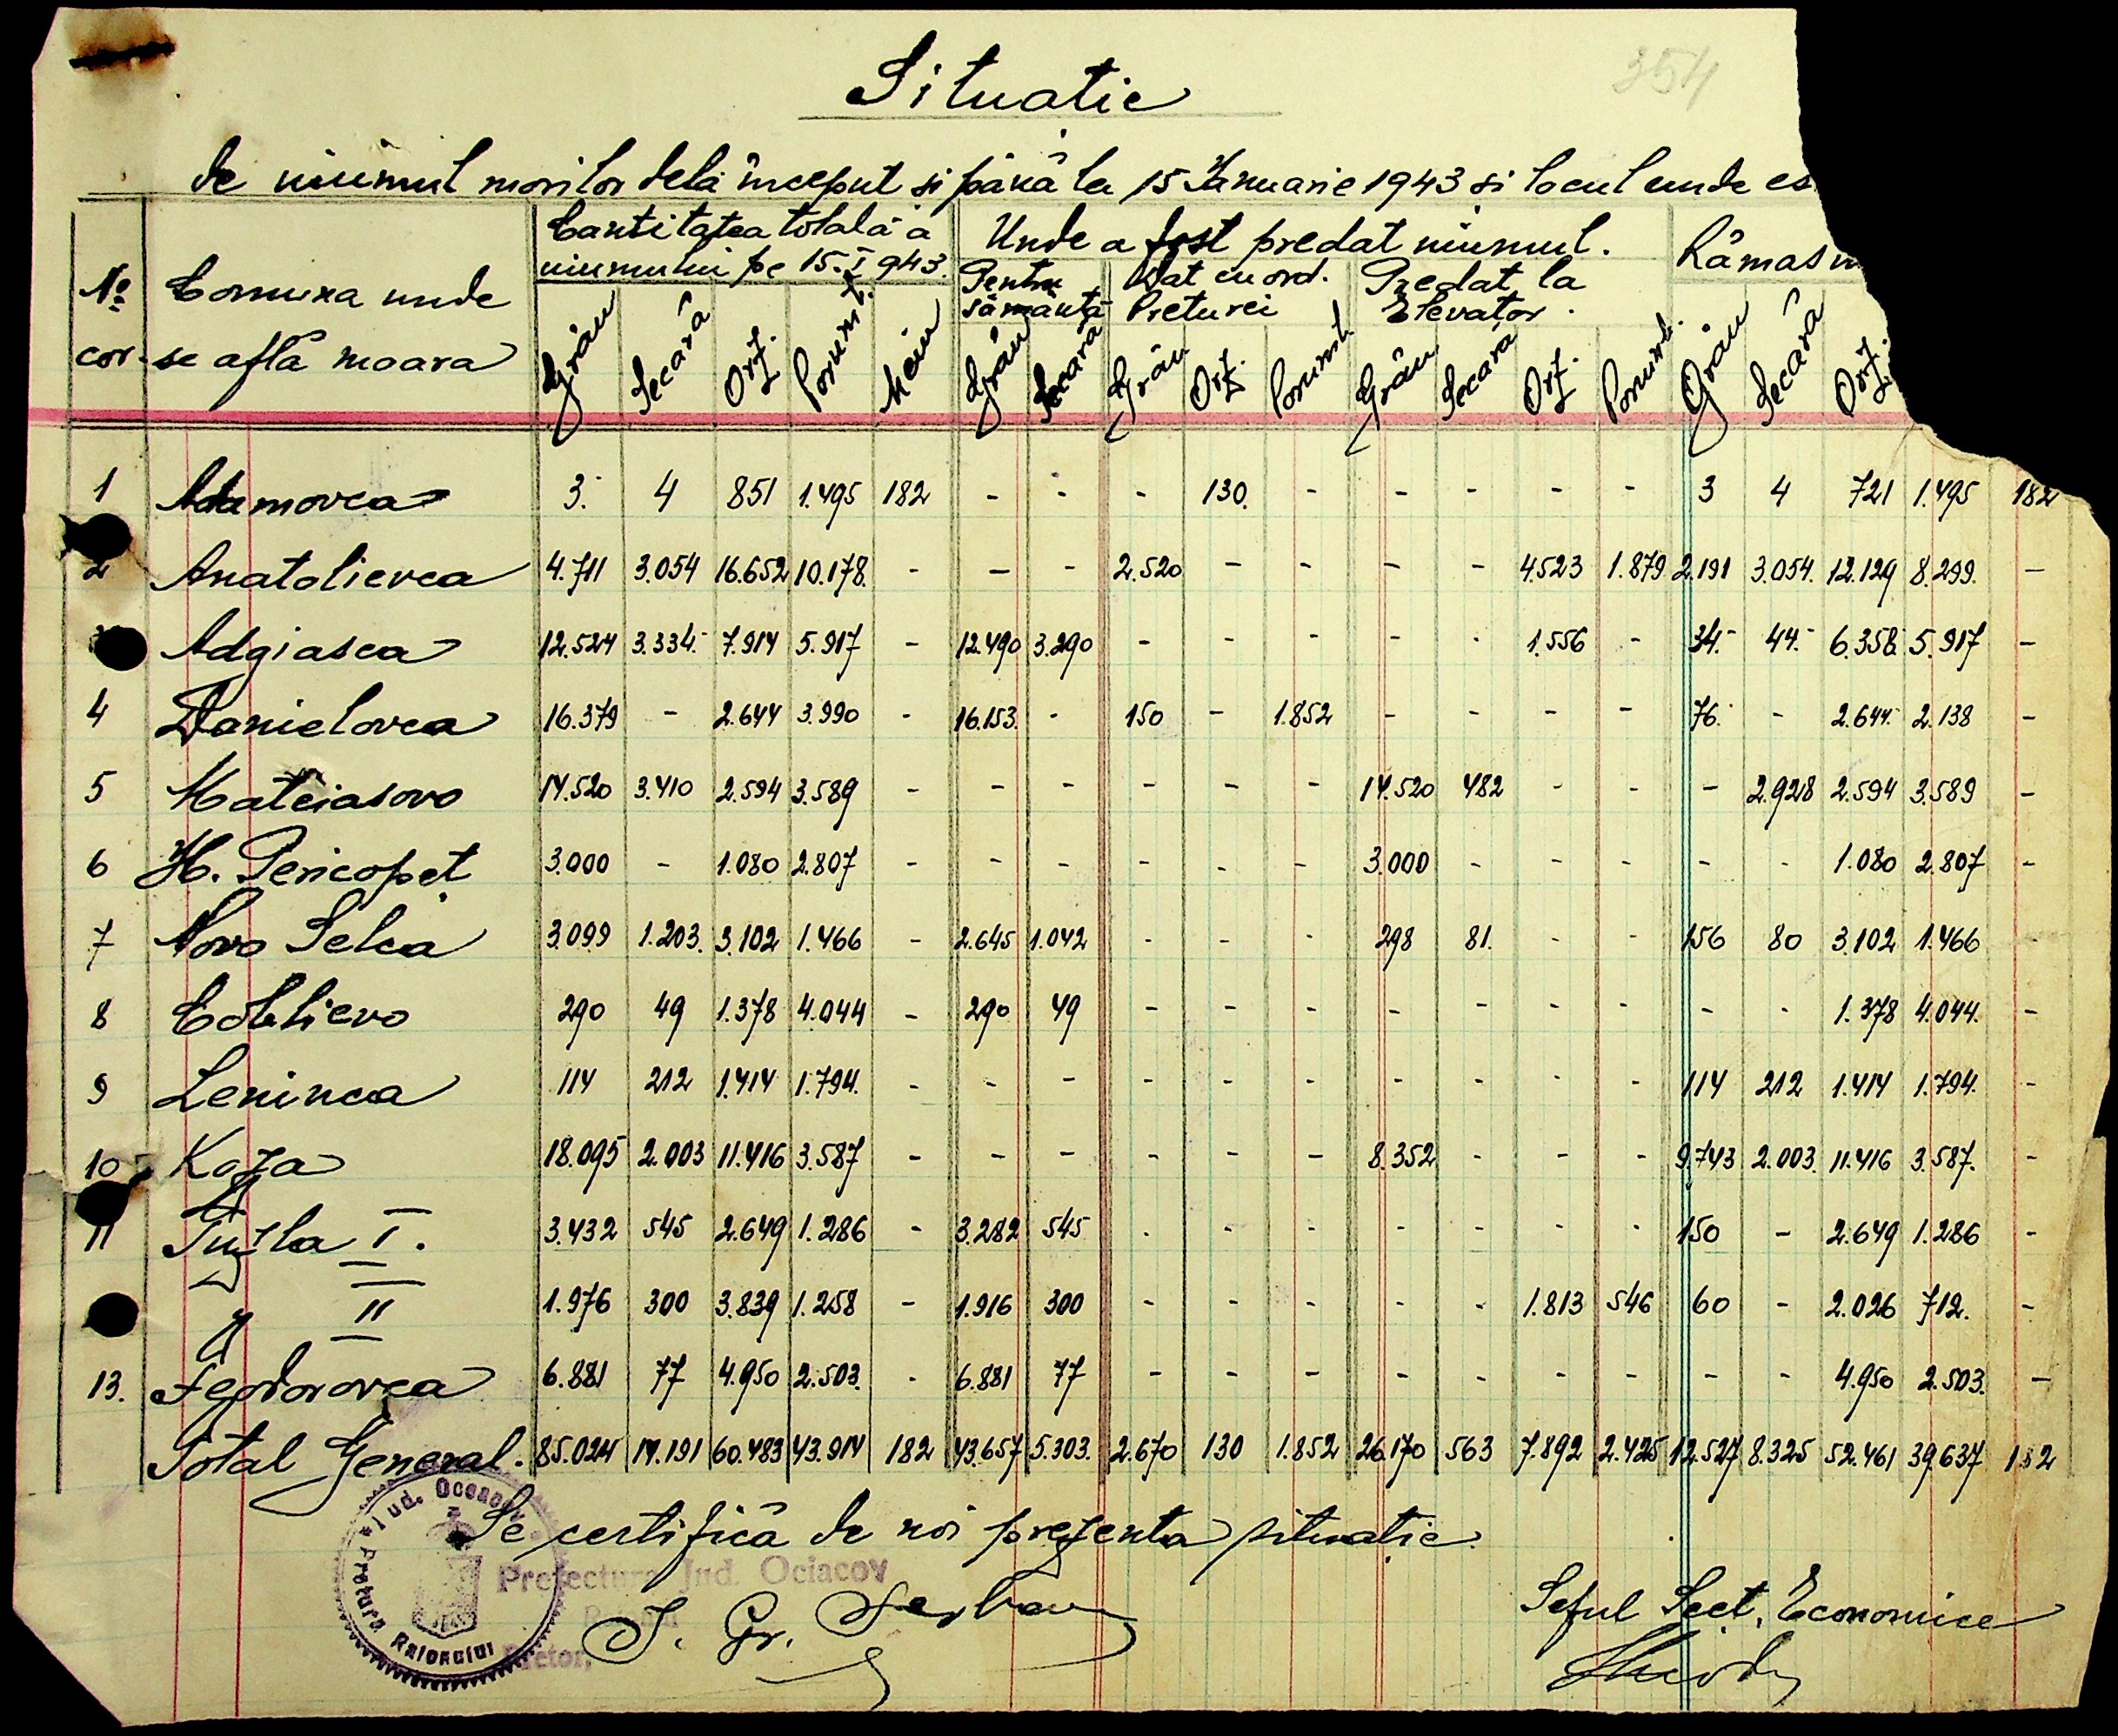 354
Situatie
de uiumul morilor dela inceput si până la 15 Ianuarie 1943 si locul unde es
No cor. Comuna unde se află moara
Cantitatea totală a uiumului pe 15.I 943.
Unde a fost predat uiumul.
Rămas
Pentru sământa Dat cu ord. Preturei Predat la Elevator.
Grâu Secară Orz. Porumb. Meiu Grâu Secară Grâu Orz. Porumb Grâu Secara Orz. Porumb. Grâu Secară Orz.
1 Adamovca 3. 4 851 1.495 182 - - - 130. - - - - - 3 4 721 1.495 182
2 Anatolievca 4.711 3.054 16.652 10.178. - - - 2.520 - - - - 4.523 1.879 2.191 3.054. 12.129 8.299. -
Adgiasca 12.524 3.334.- 7.914 5.917 - 12.490 3.290 - - - - - 1.556 - 34.- 44.- 6.358 5.917 -
4 Danielovca 16.379 - 2.644 3.990 - 16.153. - 150 - 1.852 - - - - 76. - 2.644.- 2.138 -
5 Mateiasovo 14.520 3.410 2.594 3.589 - - - - - - 14.520 482 - - - 2.928 2.594 3.589 -
6 H. Pericopet 3.000 - 1.080 2.807 - - - - - - 3.000 - - - - - 1.080 2.807 -
7 Novo Selca 3.099 1.203. 3.102 1.466 - 2.645 1.042 - - - 298 81. - - 156 80 3.102 1.466 -
8 Coblievo 290 49 1.378 4.044 - 290 49 - - - - - - - - - 1.378 4.044. -
9 Leninca 114 212 1.414 1.794. - - - - - - - - - - 114 212 1.414 1.794. -
10 Koza 18.095 2.003 11.416 3.587 - - - - - - 8.352 - - - 9.743 2.003. 11.416 3.587. -
11 Tuzla I. 3.432 545 2.649 1.286 - 3.282 545 - - - - - - - 150 - 2.649 1.286 -
II 1.976 300 3.839 1.258 - 1.916 300 - - - - - 1.813 546 60 - 2.026 712. -
13. Feodorovca 6.881 77 4.950 2.503. - 6.881 77 - - - - - - - - - 4.950 2.503. -
Total General. 85.024 14.191 60.483 43.914 182 43.657 5.303. 2.670 130 1.852 26.170 563 7.892 2.425 12.527 8.325 52.461 39637 182
Se certifică de noi prezenta situatie.
Prefectura Jud. Ociacov
Pretor,
I. Gr. Serban
Seful Sect. Economice